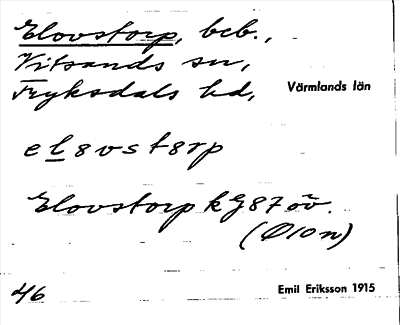 Elovstorp, beb.,
Vitsands sn,
Fryksdals hd, Värmlands län
el8vst8rp
Elovstorp kg87öv.
(Ø10n)
46 Emil Eriksson 1915